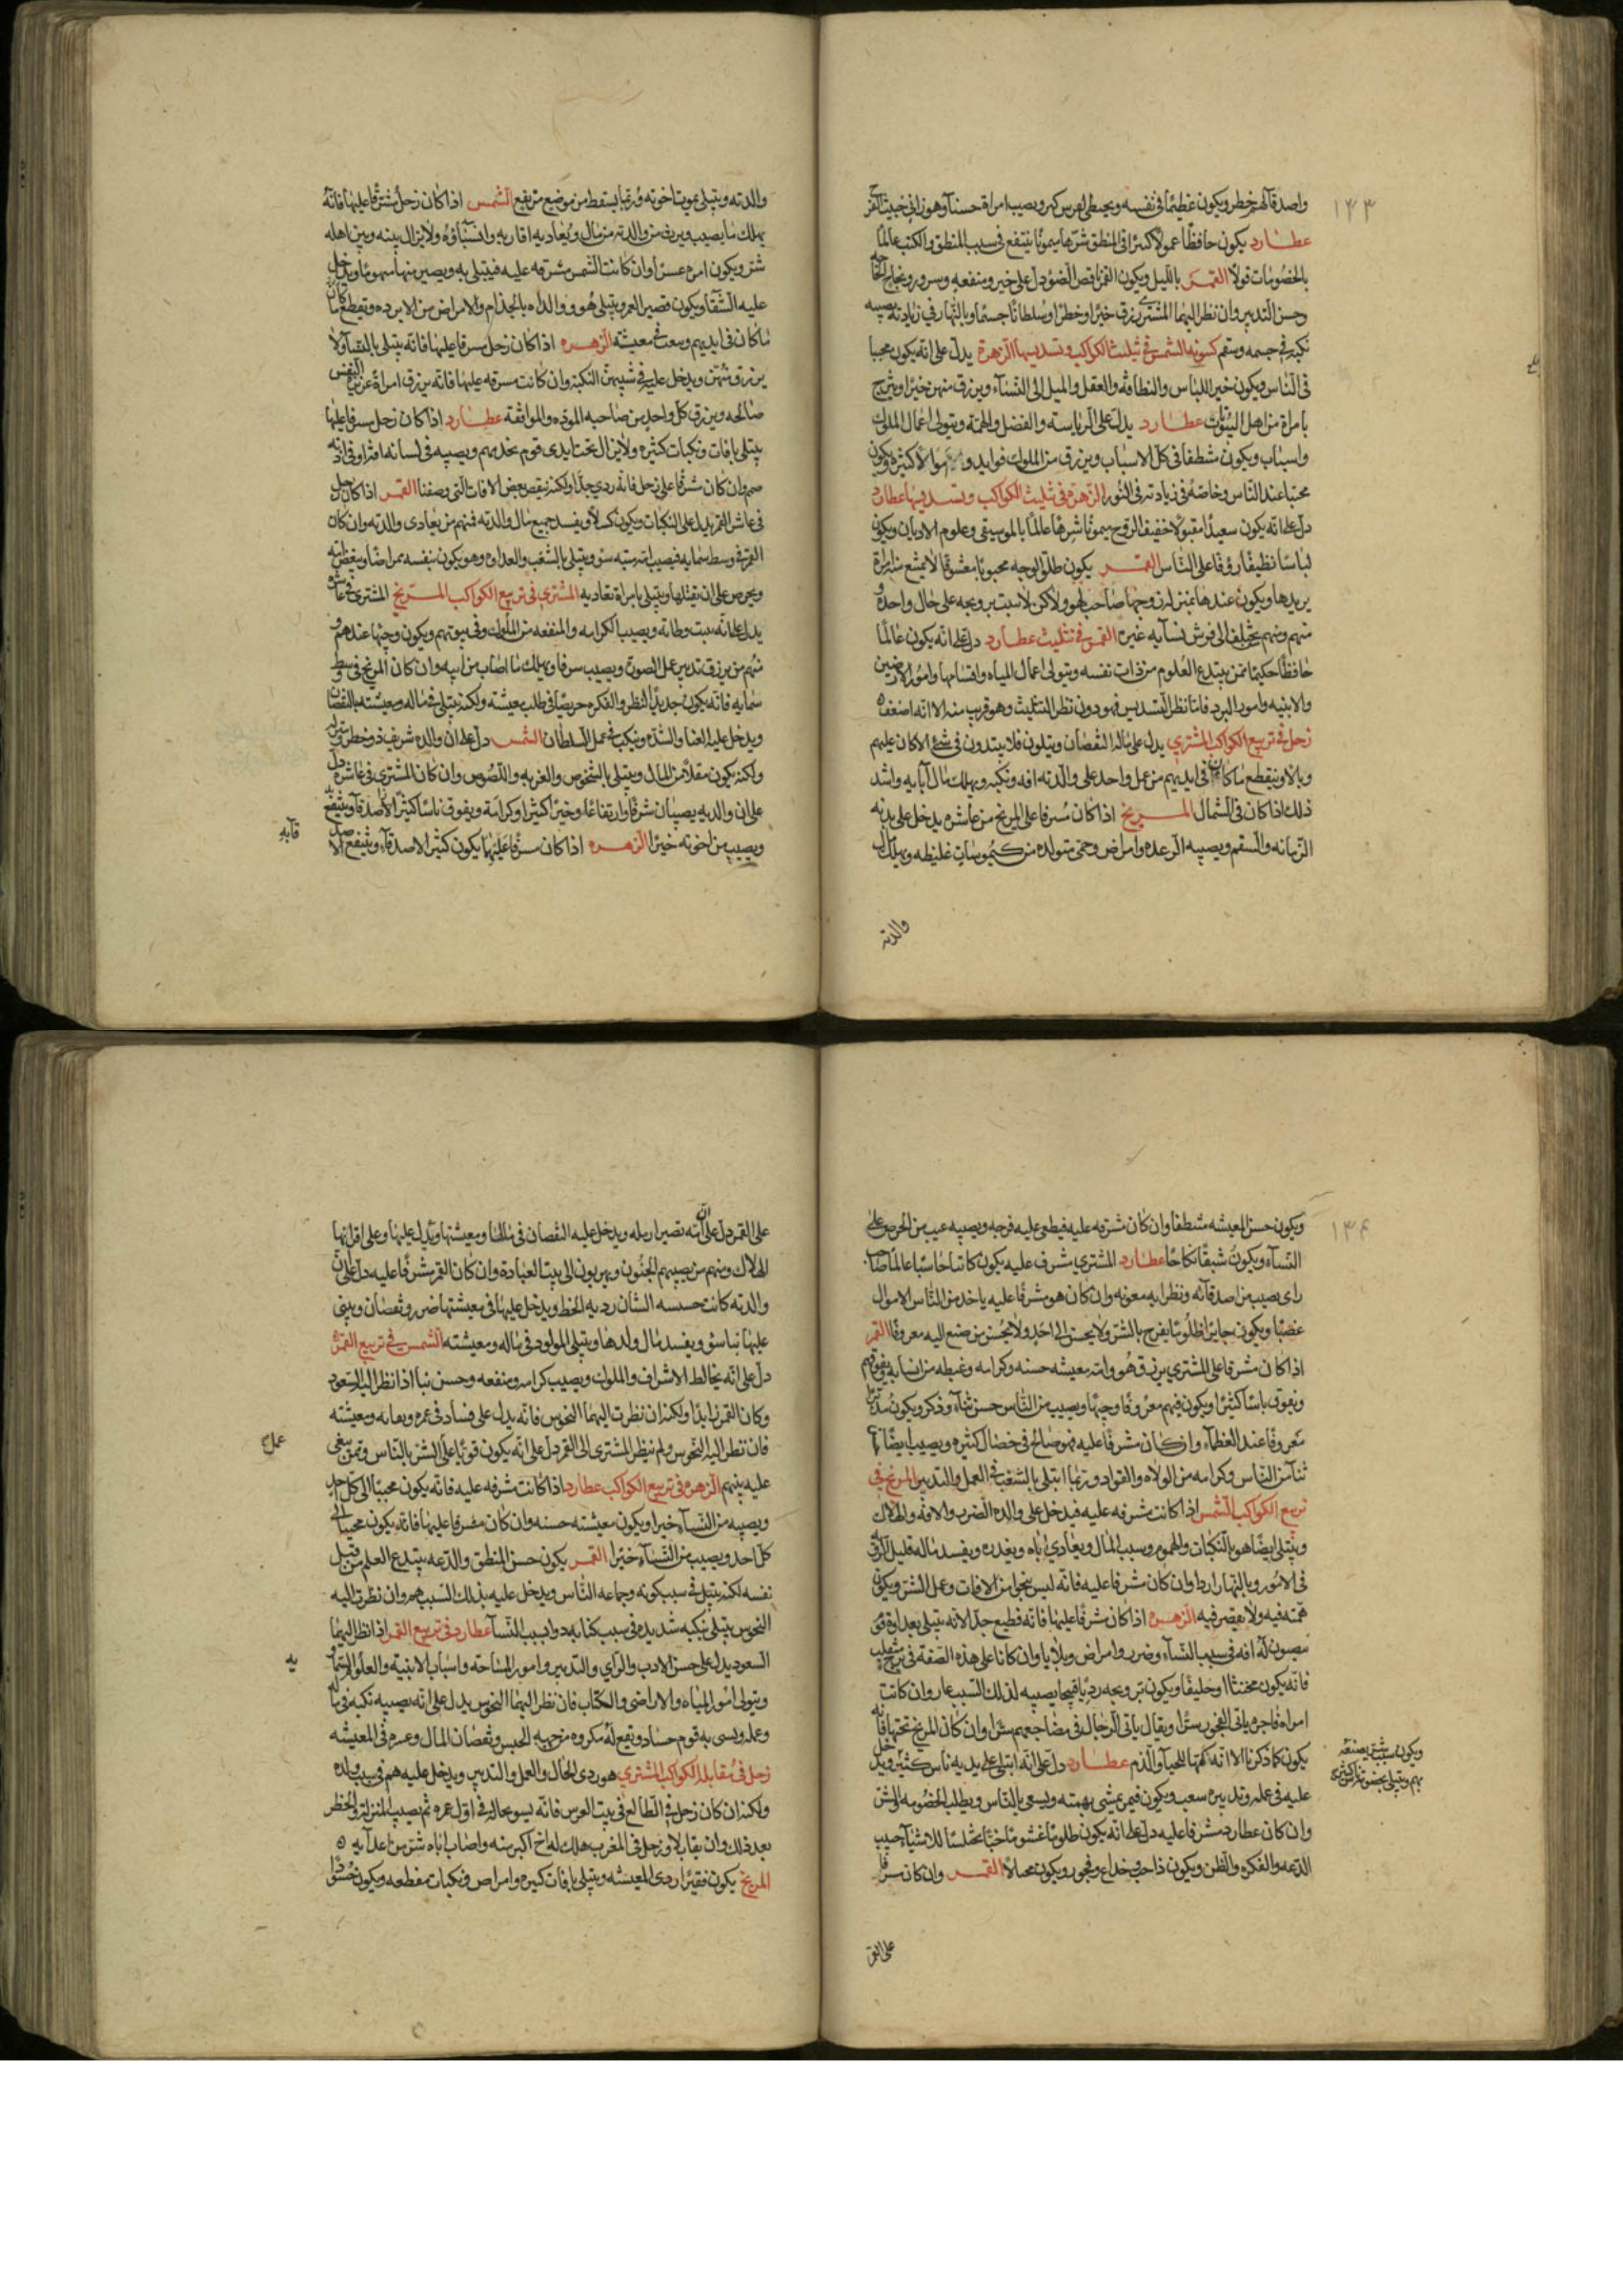 ١٣٣
واصدقاً لهم خطر ويكون عظيماً في نفسه ويحيط لعرس كبر ويصيب امراة حسناً وهو زاني خبيث الفر
عطارد يكون حافظا عمولاً كسراً في المنطق شرها ميموناً ينتفع في سبب المنطق والكتب عالماً
بالخصومات قولاً القمر بالليل ويكون القمر ناقص الضؤ دل على خير ومنفعه وسرور ونجاح الحاجه
وحسن التدبير وان نظر اليهما المشتري رزق خيراً وخطراً وسلطاناً جسيماً وبالنهار في زيادته يصيبه
نكبه في جسمه وسقم كسوبه الشمس في تثليث الكواكب وتسديسها الزهرة يدل على انه يكون محببا
في الناس ويكون خير اللباس والنظافه والعقل والميل الى النساء ويرزق منهن خيراً ويتزوج
بامراة من اهل البيوت عطارد يدل على الرياسة والفضل والهمة ويتولى اعمال الملوك
واسباب ويكون مشطفاً في كل الاسباب ويرزق من الملوك فوايد و اموالا كثيره ويكون
محببا عند الناس وخاصة في زيادته في النور الزهرة في تثليث الكواكب وتسديسها عطارد
دل على انه يكون سعيداً مقبولاً خفيف الروح ميموناً شرهاً عالماً بالموسيقى وعلوم الاديان ويكون
لباساً نظيفاً رؤفاً على الناس القمر يكون طلق الوجه محبوباً معشوقاً لا تمتنع منه امراة
يريدها ويكون عندها بمنزلة زوجها صاحب لهو ولاكن لا سبت تزويجه على حال واحده و
منهم ومنهم يختلف الى فرش نسآيه غيره القمر في تثليث عطارد دل على انه يكون عالماً
حافظاً حكيماً ممن يبتدع العلوم من ذات نفسه ويتولى اعمال المياه واقسامها وامور الارضين
والابنيه وامور البرد فاما نظر التسديس فهو دون نظر التثليث وهو قريب منه الا انه اضعف
زحل في تربيع الكواكب المشتري يدل على ماله النقصان ويتلون فلا يبتدون في شئ الا كان عليهم
وبالاً وينقطع ما كان في ايديهم من عمل واحد على والدته افه ونكبه ويهلك مال آبايه واشد
ذلك اذا كان في الشمال المريخ اذا كان مشرفا على المريخ من عاشره يدخل على بدنه
الزمانه والسقم ويصيبه الرعده وامراض وحمى متولده من كيموسات غليظه ويهلك مال
والدته
والدته ويبتلى بموت اخوته وربما يسقط من موضع مرتفع الشمس اذا كان زحل مشرفا عليها فانه
يهلك ما يصيب ويرث من والدته من مال ويعاديه اقاربه وانسبآؤه ولا يزال بينه وبين اهله
شر ويكون امره عسراً وان كانت الشمس مشرقه عليه فيبتلى به ويصير منها مهموماً ويدخل
عليه الشقآ ويكون قصير العمر ويبتلى هو ووالداه بالجذام والامراض من الابرده ويقطع ما كان
ما كان في ايديهم وسعت في معيشته الزهره اذا كان زحل مسرفا عليها فانه يبتلى بالنسآ ولا
يرزق منهن ويدخل عليه في شبيهن النكبة وان كانت مسرقه عليها فانه يرزق امراة عزيزة النفس
صالحه ويرزق كل واحد من صاحبه المودة والموافقة عطارد اذا كان زحل مسرفا عليها
يبتلى بافات ونكبات كثيره ولا يزال تحت ايدى قوم يخدمهم ويصيبه في لسانه افة او في اذنه
صمم وان كان شرفاً على زحل فانه ردى جداً ولكنه ينقص بعض الافات التي وصفنا القمر اذا كان زحل
في عاشر القمر يدل على النكبات ويكون كسلاً ويفسد جميع مال والدته فمنهم من يعادى والدته وان كان
القمر في وسط سمايه فيصيب امه ميته سؤ ويبتلى بالشغب والعداوه وهو يكون بنفسه ممراضاً ويبغض امراته
ويحرص على ان يقتلها ويبتلى بامراة تعاديه المشتري في تربيع الكواكب المريخ المشتري في عاشره
يدل على انه يثبت وطانه ويصيب الكرامه والمنفعه من الملوك وفي بيوتهم ويكون وجيهاً عندهم و
منهم من يرزق تدبير عمل الصوت ويصيب سرفا ويهلك ما اصاب من ابيه وان كان المريخ في وسط
سمايه فانه يكون جديد النظر والفكره حريصاً في طلب معيشته ولكنه يبتلى في ماله ومعيشته بالنقصان
ويدخل عليه العنا والشدة وينكب في عمل السلطان الشمس دل على ان والده شريف ذو خطر ومنزله
ولكنه يكون مقلاً من المال ويبتلى بالشخوص والغربه واللصوص وان كان المشتري في عاشره دل
على ان والديه يصيبان شرفاً وارتفاعاً وخيراً كثيراً وكرامة ويفوق ناساً كثيراً الاصدقآ وينتفع به
ويصيب من اخوته خيراً الزهره اذا كان مسرفاً عليها يكون كثير الاصدقاء وينتفع الاصد
قآيه
١٣٤
ويكون حسن المعيشه مشطفاً وان كان شرقه عليه فيطمع عليه فرجه ويصيبه عيب من الحرص على
النسآء ويكون شبقاً نكاحاً عطارد المشتري مشرف عليه يكون كاتبا حاسبا عالما صا.
راى يصيب من اصدقآئه ونظرايه معونه وان كان هو مشرفاً عليه ياخذ من الناس الاموال
غصبا ويكون جايراً ظلوماً يفرح بالشر ولا يحسن الى احد ولا يحسن من صنع اليه معروفاً القمر
اذا كان مشرفا على المشتري يرزق هو وامه معيشه حسنه وكرامه وغبطه من انسابه ويفوقهم
ويفوق ناساً كثيراً ويكون فيهم معروفاً وجيهاً ويصيب من الناس حسن ثناء وذكر ويكون مدبراً
معروفاً عند العظمآء وان كان مشرفاً عليه فهو صالح في خصال كثيره ويصيب ايضاً
ثناً من الناس وكرامه من الولاه والقواد وربما ابتلى بالشغب في العمل والتدبير المريخ في
تربيع الكواكب الشمس اذا كانت مشرفه عليه فيدخل على والده الضرب والافه والهلاك
ويبتلى ايضا هو بالنكبات والهموم وسبب المال ويعادي اباه ويغدره ويفسد ماله قليل الرزق
في الامور وبالنهار اردا وان كان مشرفا عليه فانه ليس ينجوا من الافات وعمل الشر ويكون
همته فيه ولا يقصر فيه الزهره اذا كان مشرفاً عليها فانه فطيع جداً لانه يبتلى بعداوة قوم
يصيبون له افه في سبب النسآء وضرر وامراض وبلايا وان كانا على هذه الصفه في برج منقلب
فانه يكون مخنثاً او حليقاً ويكون تزويجه ردياً قبيحا يصيبه لذلك السبب عار وان كانت
امراه فاجره ياتى الفجور سرا ويقال ياتى الرجال في مضاجعهم سراً وان كان المريخ تحتها فانه
يكون كما ذكرنا الا انه لكمتها للحيآ والذم عطارد دل على انه ابتلى على يديه ناس كثير ويدخل
عليه في عمله وتدبيره سعب ويكون فيمن يمشى بهمته ويسعى بالناس ويطلب الخصومه والشر
وان كان عطارد مشرفا عليه دل على انه يكون ظلوماً غشوماً خبثاً مختلساً للاشيآ حبيب
الدعه والفكره والظن ويكون ذا حرد وخداع وفجور ويكون محتالاً القمر وان كان مسرفا
ويكون سبب شى يصنعه
بهم ويبتلى بخصومات كثيره
على القمر
على القمر دل على ان امه تصير ارمله ويدخل عليه النقصان في مالها ومعيشتها ويدل عليها وعلى اقرانها
الهلاك ومنهم من يصيبهم الجنون ويهربون الى بيت العبادة وان كان القمر مشرفاً عليه دل على ان
والدته كانت خسيسه الشان رديه الخط ويدخل عليها في معيشتها ضرر ونقصان ويثنى
عليها نبا سؤ ويفسد مال ولدها ويبتلى المولود في ماله ومعيشته الشمس في تربيع القمر
دل على انه يخالط الاشراف والملوك ويصيب كرامه ومنفعه وحسن نبأ اذا نظر اليها السعود
وكان القمر زايداً ولكنه ان نظرت اليهما النحوس فانه يدل على فساد في عمره وبقايه ومعيشته
فان نظر اليه النحوس ولم ينظر المشترى الى القمر دل على انه يكون قوياً على الشر بالناس وممن يبغى
عمل ح
عليه يتيهم الزهره في تربيع الكواكب عطارد اذا كانت مشرفه عليه فانه يكون محبباً الى كل احد
ويصيبه من النساء خيراً ويكون معيشته حسنه وان كان مشرفا عليها فانه يكون محبباً الى
كل احد ويصيب من النسآء خيراً القمر يكون حسن المنطق والدعه يبتدع العلم من قبل
نفسه لكنه يبتلى في سبب كونه وجماعه الناس ويدخل عليه بذلك السبب هم وان نظرت اليه
النحوس يبتلى بنكبه شديده في سبب كتابه دوا بسبب النسآ عطارد في تربيع القمر اذا نظر اليهما
السعود يدل على حسن الادب والراي والتدبير وامور المساحه واسباب الابنية والعلوم
يه
ويتولى امور المياه والاراضى والكتاب فان نظر اليهما النحوس يدل على انه يصيبه نكبه في ماله
وعمله ويسى به قوم حساد ويقع له مكروه من جهه الحبس ونقصان المال وعسره في المعيشه
زحل في مقابلة الكواكب المشتري هو ردى الحال والعمل والتدبير ويدخل عليه هم في سبب ولده
ولكنه ان كان زحل في الطالع في بيت الغرس فانه يسو حاله في اول عمره ثم يصيب المنزله والخطر
بعد ذلك وان تقابلا وزحل في المغرب هلك له اخ اكبر منه واصاب اباه شر من اعدآيه ٥
المريخ يكون فقيراً ردى المعيشه ويبتلى بافات كثيره وامراض ونكبات مفظعه ويكون حسوداً